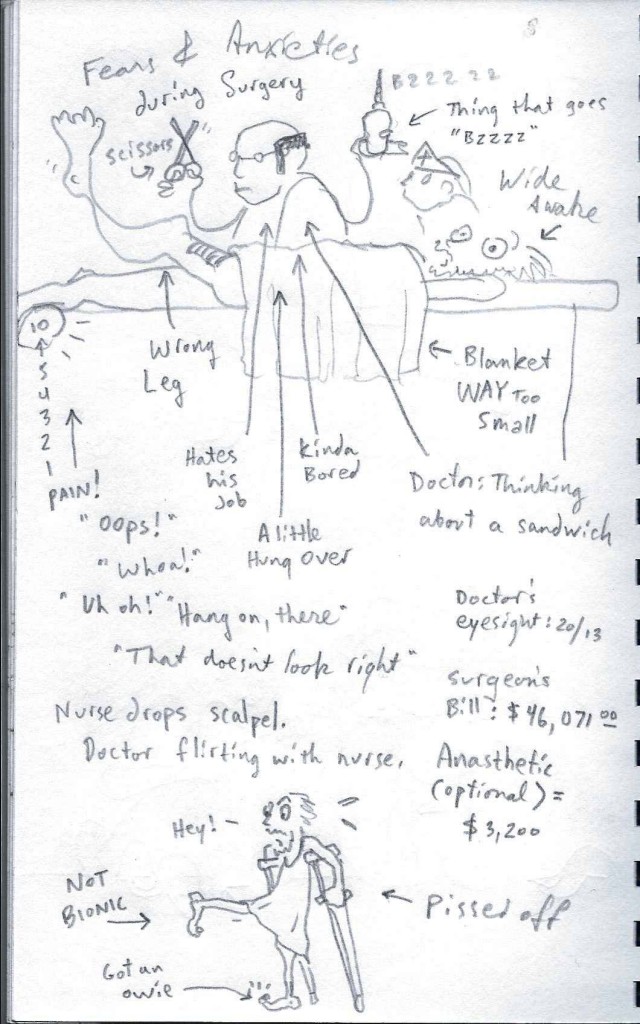 Fears & Anxieties
during Surgery
BZZZZZZ
Thing that goes
"BZZZZ"
scissors
Wide
Awake
10
5
4
3
2
1
PAIN!
Wrong
Leg
Blanket
WAY Too
Small
Hates
his
Job
Kinda
Bored
A little
Hung Over
Doctor: Thinking
about a sandwich
"Oops!"
"Whoa!"
"Uh oh!" "Hang on, there"
"That doesn't look right"
Doctor's
eyesight: 20/13
Surgeon's
Bill: $46,071.00
Nurse drops scalpel.
Doctor flirting with nurse.
Anasthetic
(optional) =
$3,200
Hey! -
NOT
BIONIC
Pissed off
Got an
owie